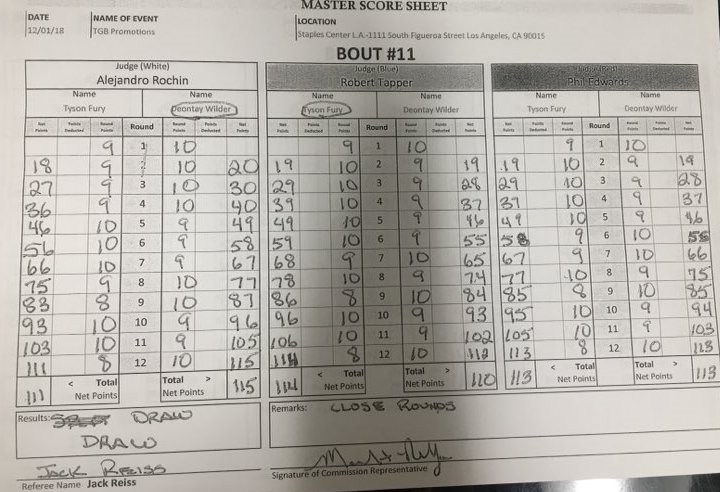 MASTER SCORE SHEET
DATE NAME OF EVENT LOCATION
12/01/18 TGB Promotions Staples Center L.A.-1111 South Figueroa Street Los Angeles, CA 90015
BOUT #11
Judge (White) Judge (Blue) Judge (Red)
Alejandro Rochin Robert Tapper Phil Edwards
Name Name Name Name Name Name
Tyson Fury Deontay Wilder Tyson Fury Deontay Wilder Tyson Fury Deontay Wilder
Net Points Points Deducted Round Points Round Round Points Points Deducted Net Points Net Points Points Deducted Round Points Round Round Points Points Deducted Net Points Net Points Points Deducted Round Points Round Round Points Points Deducted Net Points
9 1 10 9 1 10 9 1 10
18 9 2 10 20 19 10 2 9 19 19 10 2 9 19
27 9 3 10 30 29 10 3 9 28 29 10 3 9 28
36 9 4 10 40 39 10 4 9 37 39 10 4 9 37
46 10 5 9 49 49 10 5 9 46 49 10 5 9 46
56 10 6 9 58 59 10 6 9 55 58 9 6 10 56
66 10 7 9 67 68 9 7 10 65 67 9 7 10 66
75 9 8 10 77 78 10 8 9 74 77 10 8 9 75
83 8 9 10 87 86 8 9 10 84 85 8 9 10 85
93 10 10 9 96 96 10 10 9 93 95 10 10 9 94
103 10 11 9 105 106 10 11 9 102 105 10 11 9 103
111 8 12 10 115 114 8 12 10 112 113 8 12 10 113
111 < Total Net Points Total > Net Points 115 114 < Total Net Points Total > Net Points 110 113 < Total Net Points Total > Net Points 113
Results: DRAW Remarks: CLOSE ROUNDS
DRAW
JACK REISS
Referee Name Jack Reiss Signature of Commission Representative